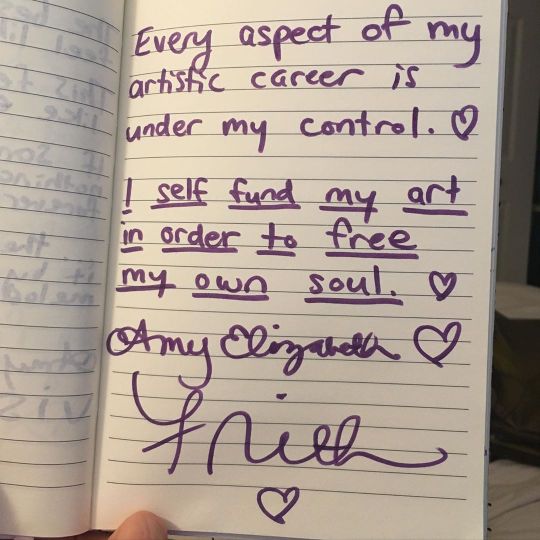 Every aspect of my
artistic career is
under my control. ♡
I self fund my art
in order to free
my own soul. ♡
Amy Elizabeth ♡
♡